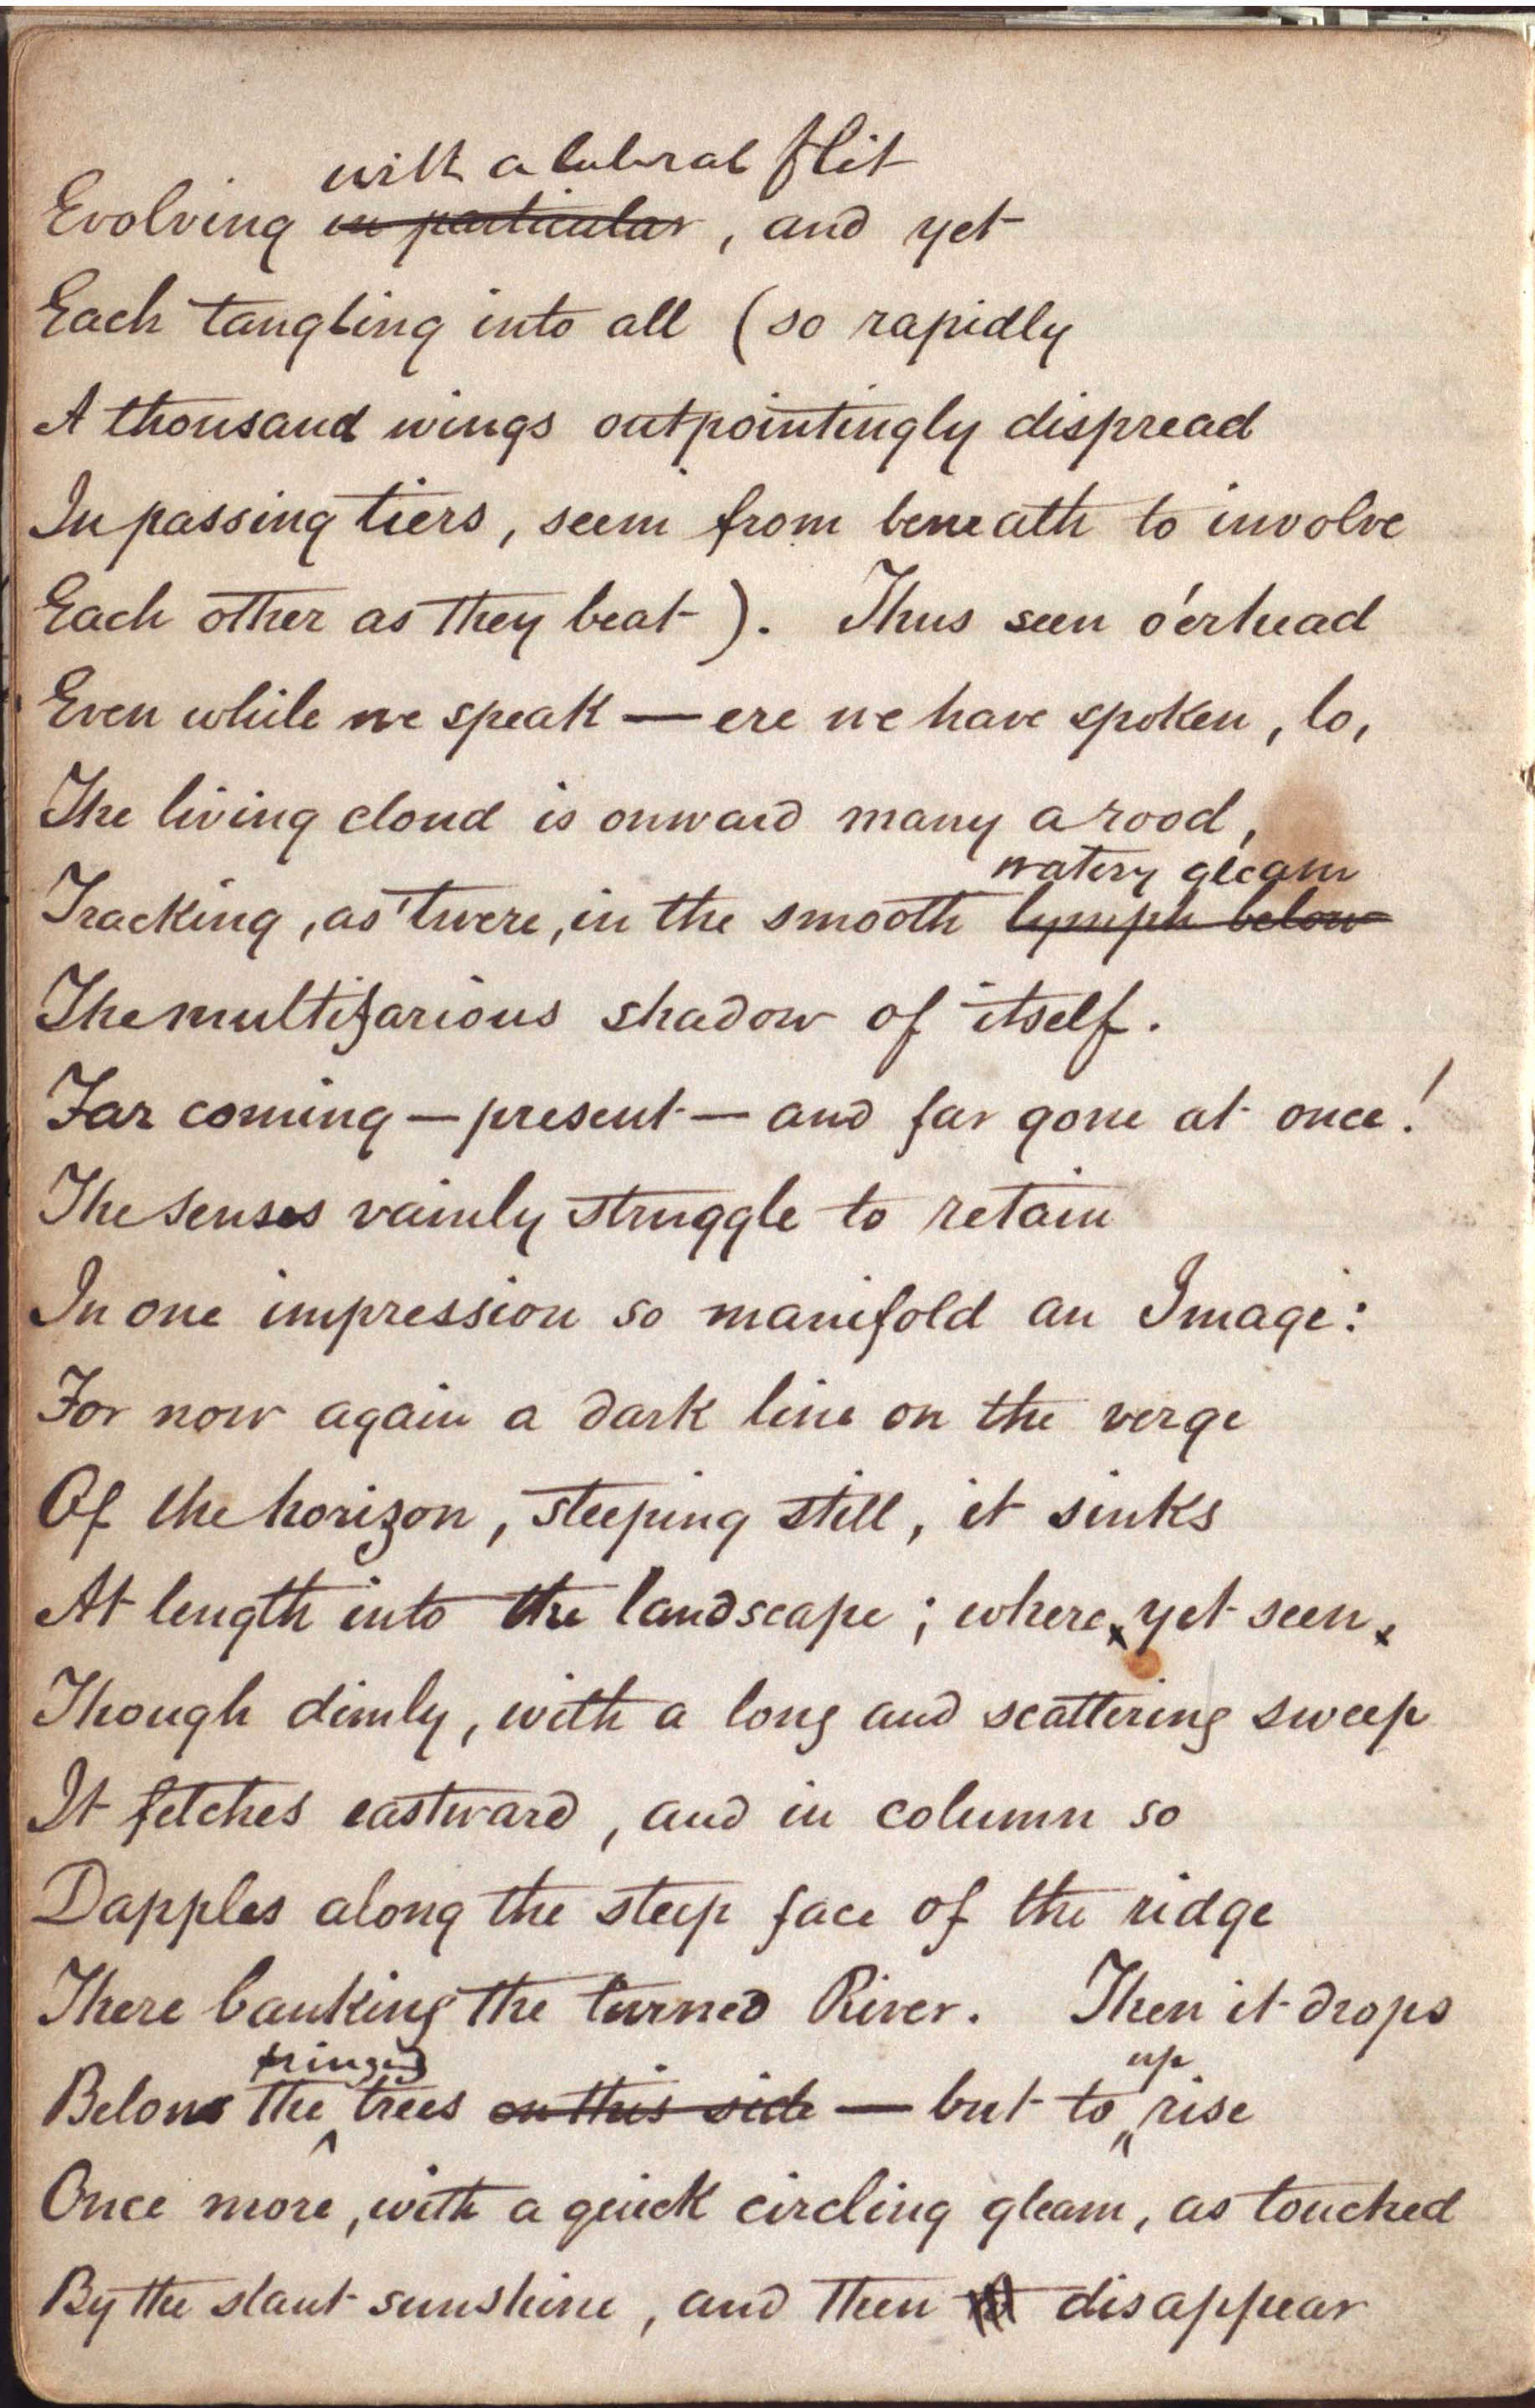 with a lateral flit
Evolving in particular, and yet
Each tangling into all (so rapidly
A thousand wings outpointingly dispread
In passing tiers, seem from beneath to involve
Each other as they beat). Thus seen o'erhead
Even while we speak — ere we have spoken, lo,
The living cloud is onward many a rood,
watery gleam
Tracking, as 'twere, in the smooth lymph below
The multifarious shadow of itself.
Far coming — present — and far gone at once!
The senses vainly struggle to retain
In one impression so manifold an Image:
For now again a dark line on the verge
Of the horizon, steeping still, it sinks
At length into the landscape; where, yet seen,
Though dimly, with a long and scattering sweep
It fetches eastward, and in column so
Dapples along the steep face of the ridge
There banking the turned River. Then it drops
fringed up
Below the trees on this side — but to rise
Once more, with a quick circling gleam, as touched
By the slant sunshine, and then disappear